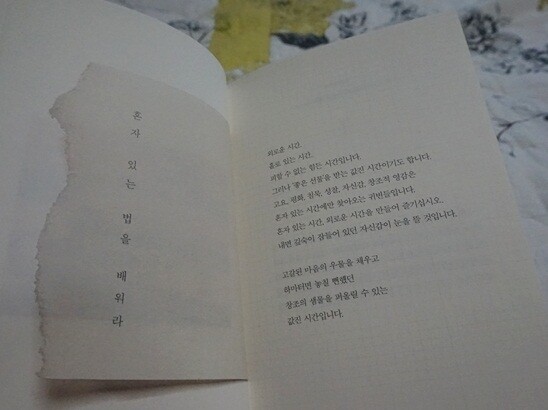 혼자 있는 법을 배워라
외로운 시간.
홀로 있는 시간.
피할 수 없는 힘든 시간입니다.
그러나 '좋은 선물'을 받는 값진 시간이기도 합니다.
고요, 평화, 침묵, 성찰, 자신감, 창조적 영감은
혼자 있는 시간에만 찾아오는 귀빈들입니다.
혼자 있는 시간, 외로운 시간을 만들어 즐기십시오.
내면 깊숙이 잠들어 있던 자신감이 눈을 뜰 것입니다.
고갈된 마음의 우물을 채우고
하마터면 놓칠 뻔했던
창조의 샘물을 퍼올릴 수 있는
값진 시간입니다.